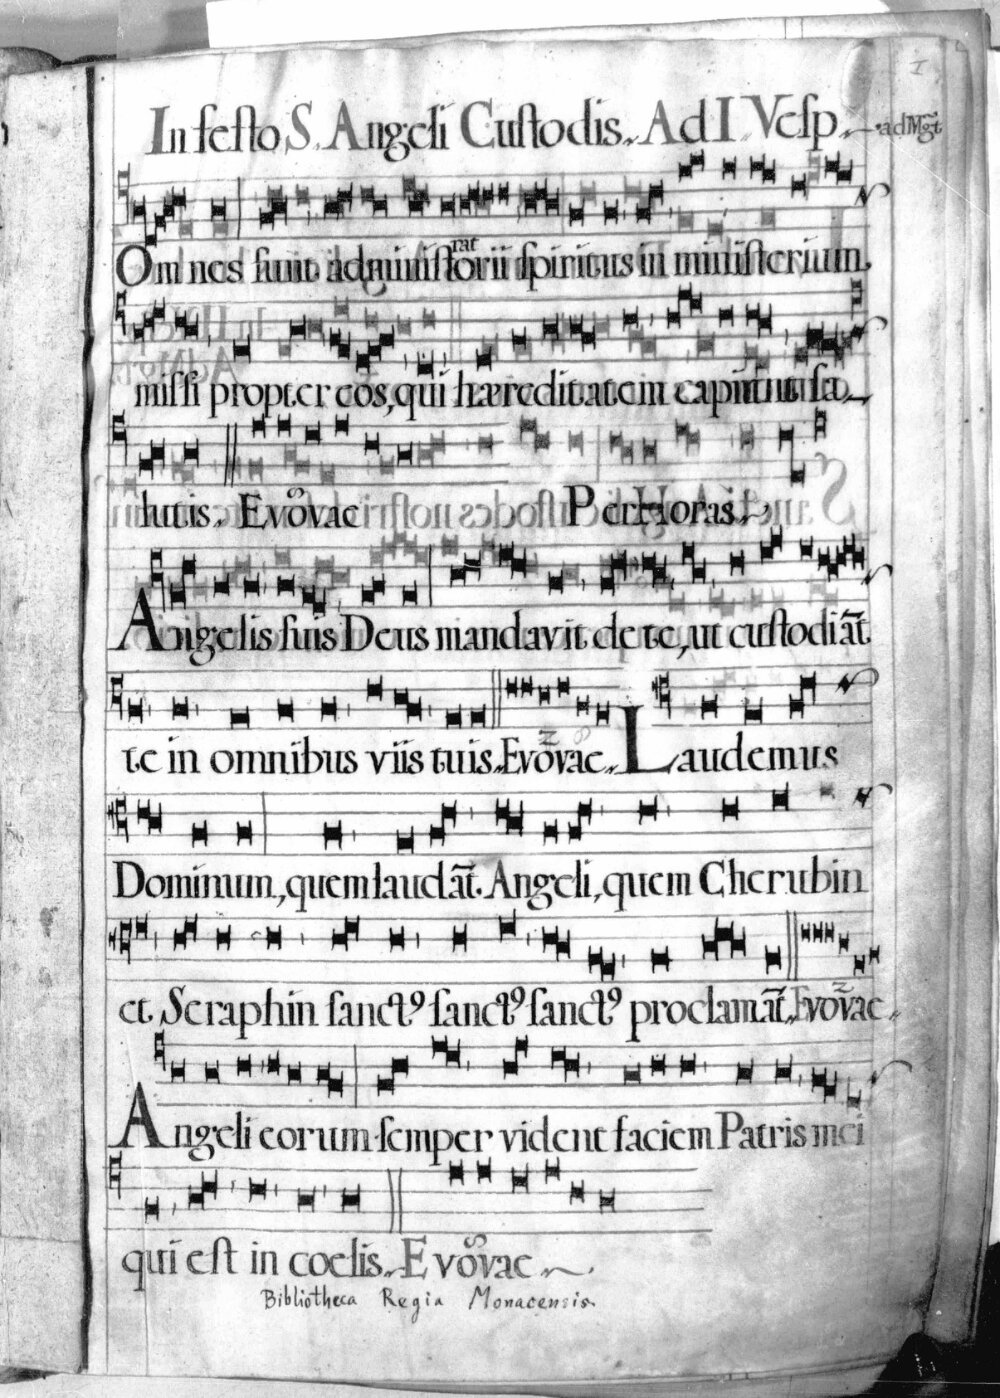 In festo S. Angeli Custodis. Ad I Vesp. ad Mgt̃
1
Omnes sunt administratorii spiritus in ministerium
missi propter eos, qui hæreditatem capiunt sa-
lutis. Evovae Per Horas.
Angelis suis Deus mandavit de te, ut custodiãt
te in omnibus viis tuis. Evovae. Laudemus
Dominum, quem laudãt Angeli, quem Cherubin
et Seraphin sanctꝰ sanctꝰ sanctꝰ proclamãt. Evovae.
Angeli eorum semper vident faciem Patris mei
qui est in coelis. Evovae
Bibliotheca Regia Monacensis.